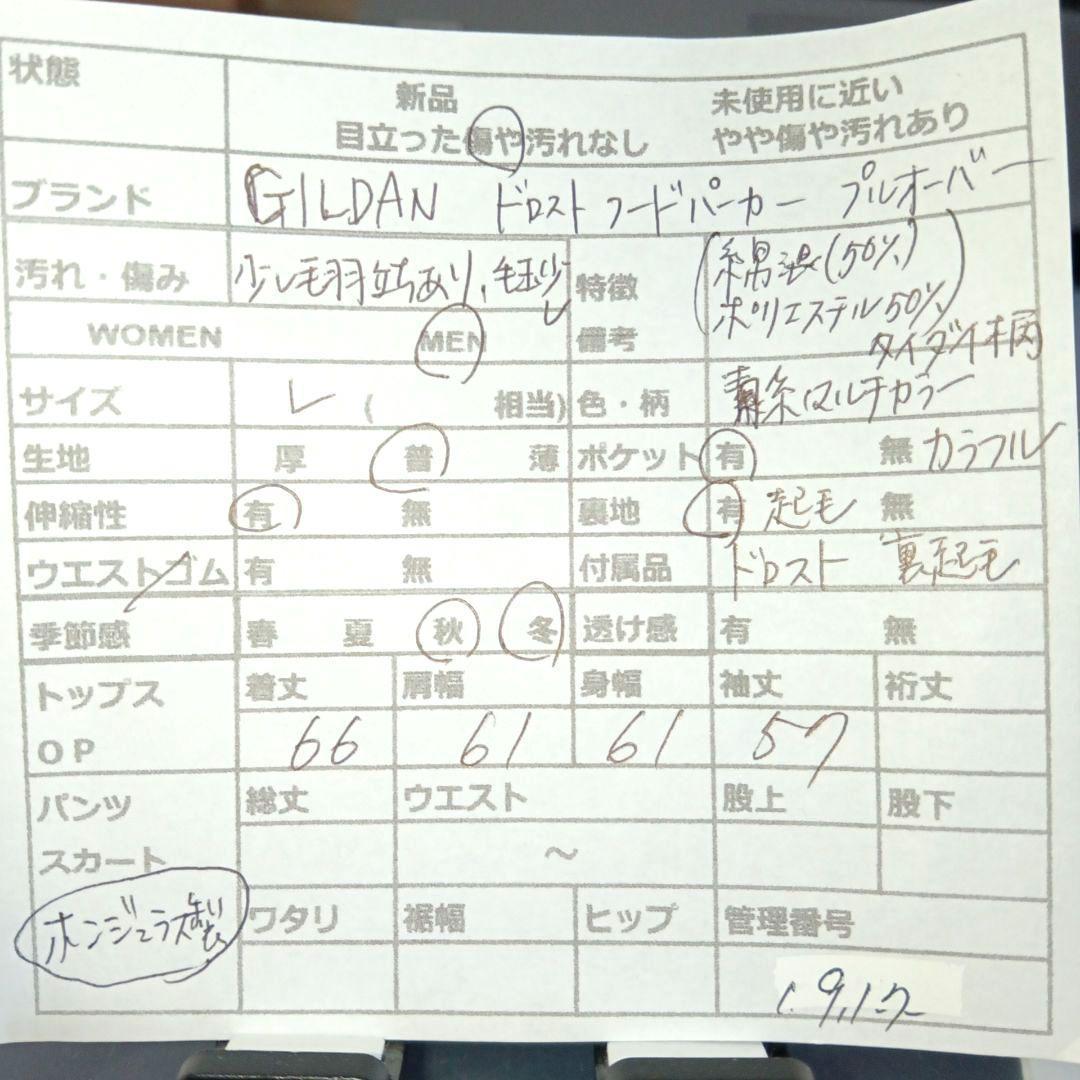 状態
新品 未使用に近い
目立った傷や汚れなし やや傷や汚れあり
ブランド GILDAN ドロスト フードパーカー プルオーバー
汚れ・傷み 少し毛羽立ちあり、毛玉少し 特徴 (綿混(50%)
WOMEN MEN 備考 ポリエステル50%)
タイダイ柄
サイズ L ( 相当) 色・柄 青系マルチカラー
生地 厚 普 薄 ポケット 有 無 カラフル
伸縮性 有 無 裏地 有 起毛 無
ウエストゴム 有 無 付属品 ドロスト 裏起毛
季節感 春 夏 秋 冬 透け感 有 無
トップス 着丈 肩幅 身幅 袖丈 裄丈
OP 66 61 61 57
パンツ 総丈 ウエスト 股上 股下
スカート ~
ホンジュラス製 ワタリ 裾幅 ヒップ 管理番号